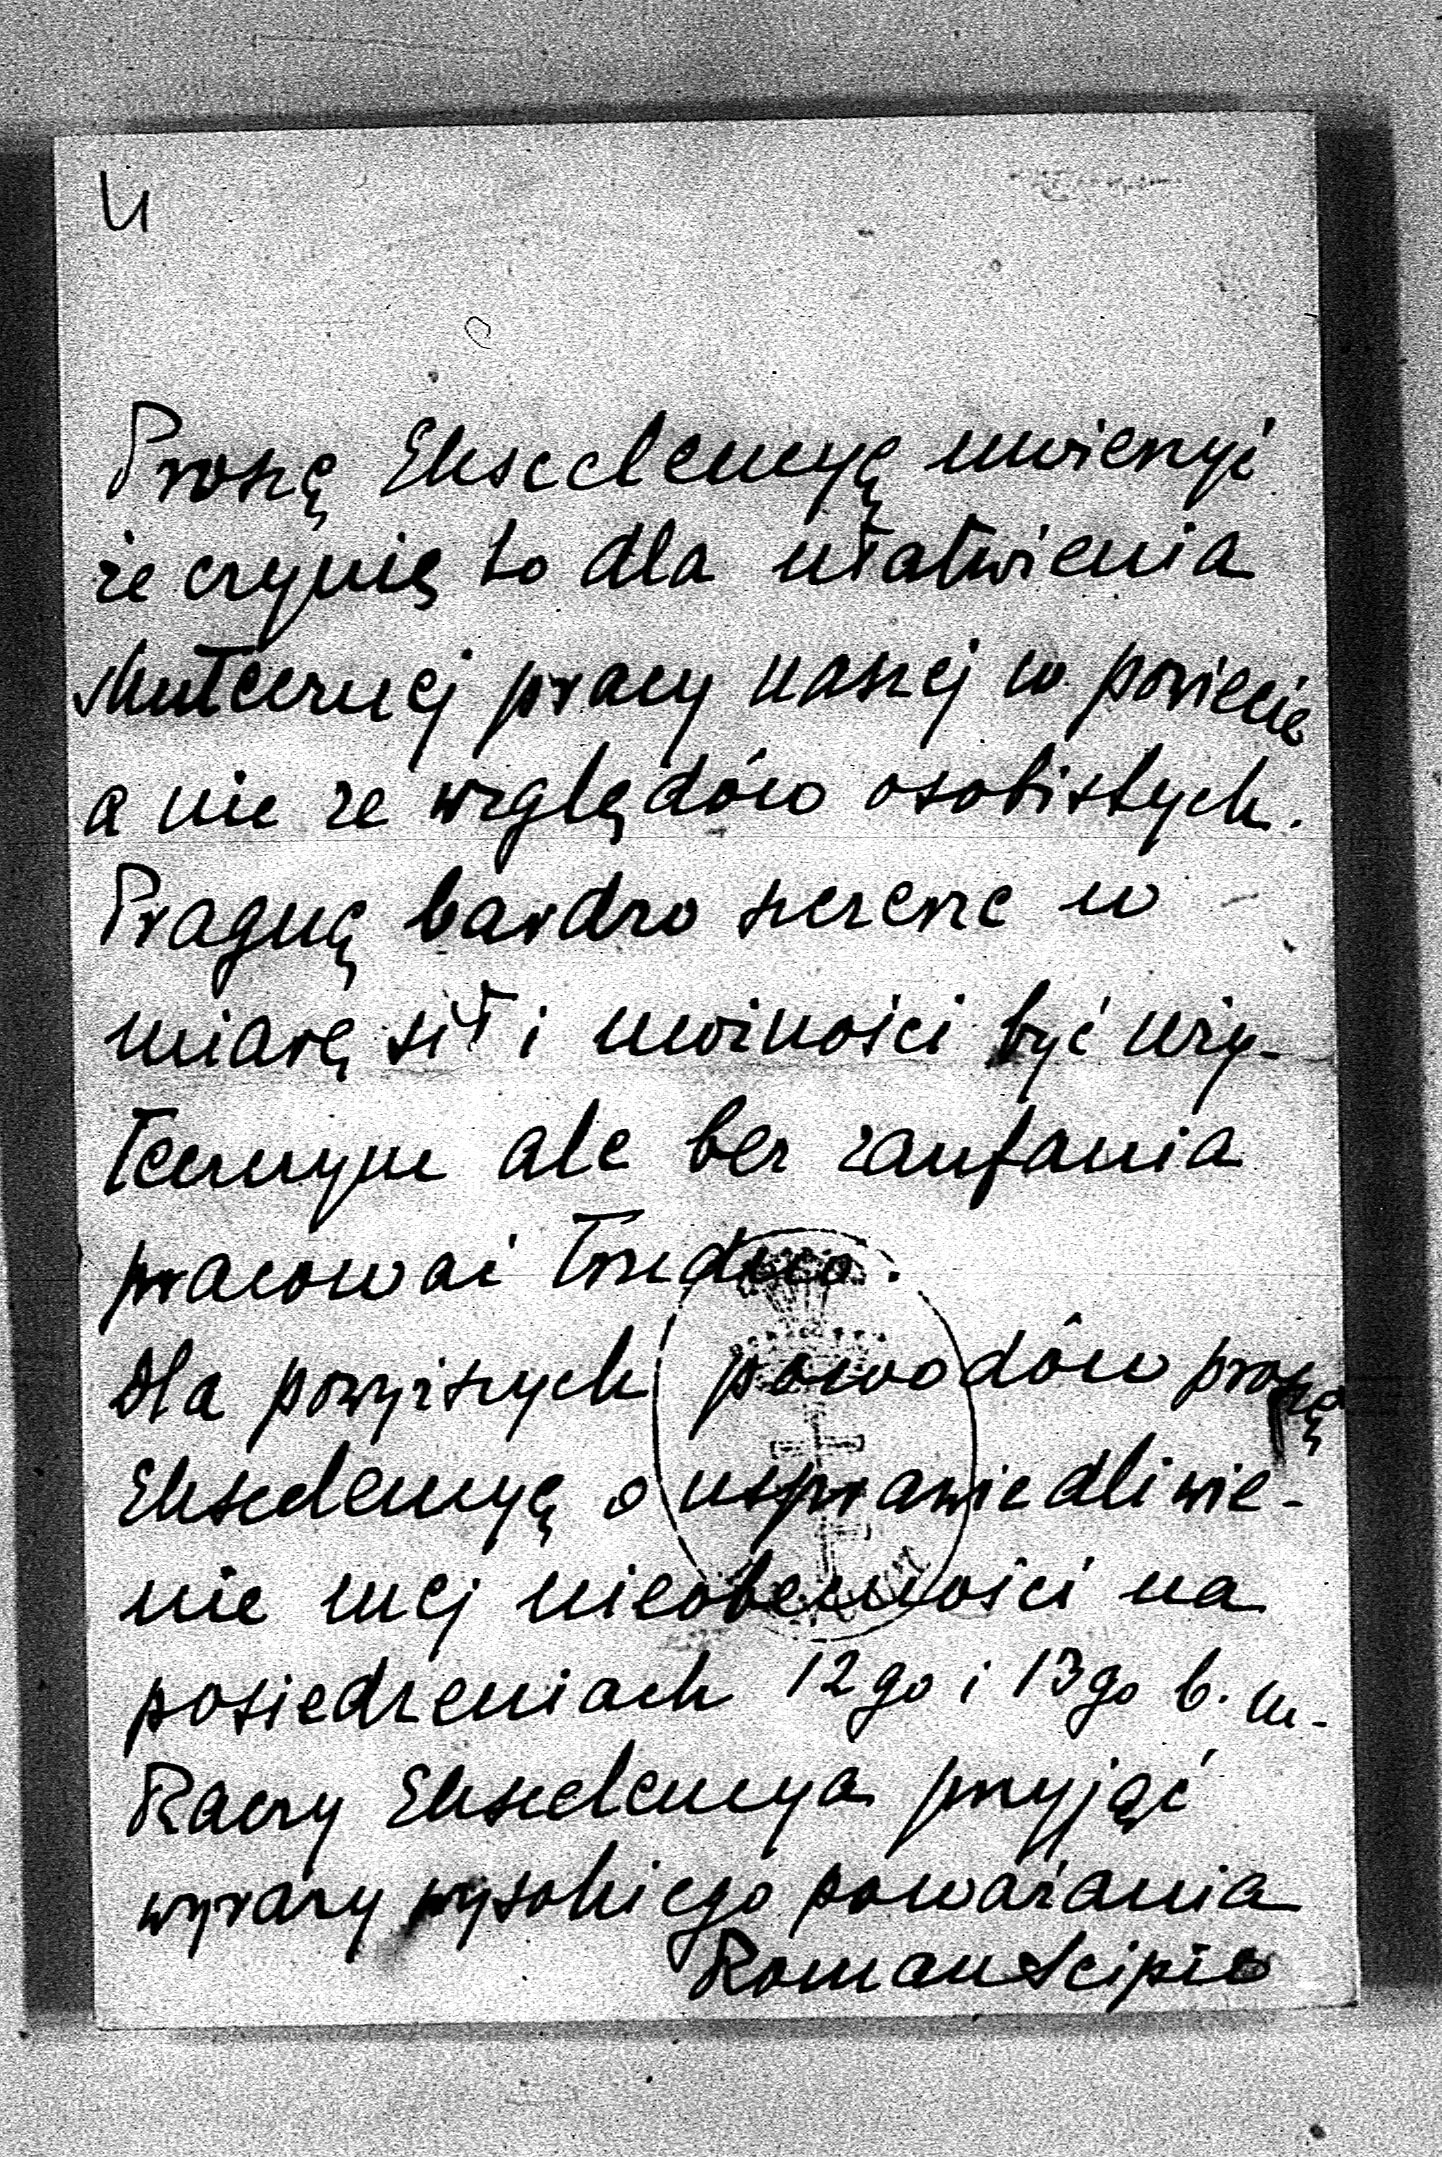 4
Proszę Ekscelencyę uwierzyć
że czynię to dla ułatwienia
skutecznej pracy naszej w powiecie
a nie ze względów osobistych.
Pragnę bardzo szczerze w
miarę sił i możności być uży-
tecznym ale bez zaufania
pracować trudno.
Dla powyższych powodów proszę
Ekscelencyę o usprawiedliwie-
nie mej nieobecności na
posiedzeniach 12go i 13go b. m.
Raczy Ekscelencya przyjąć
wyrazy wysokiego poważania
Roman Scipio